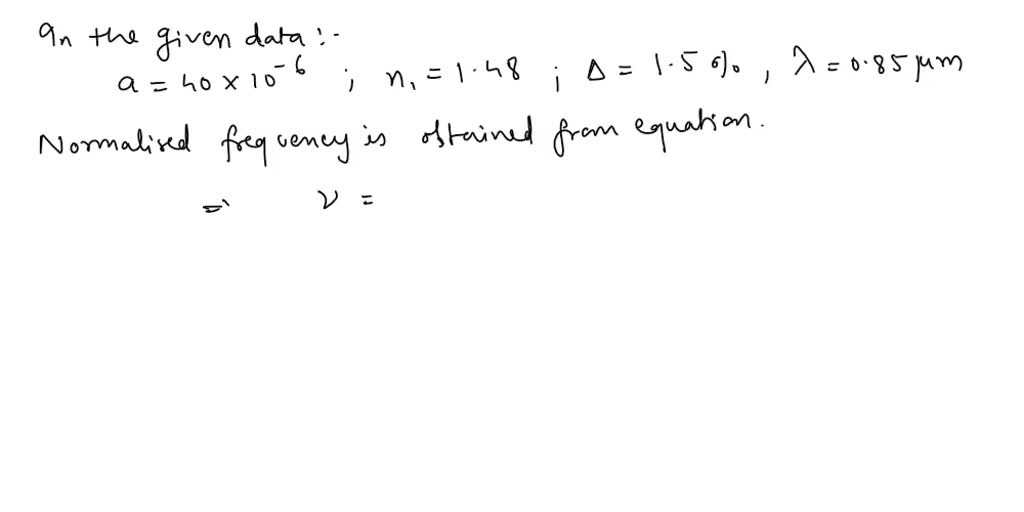 In the given data :-
a = 40 × 10⁻⁶ ; n₁ = 1.48 ; Δ = 1.5 %, λ = 0.85 μm
Normalised frequency is obtained from equation.
⇒ ν =